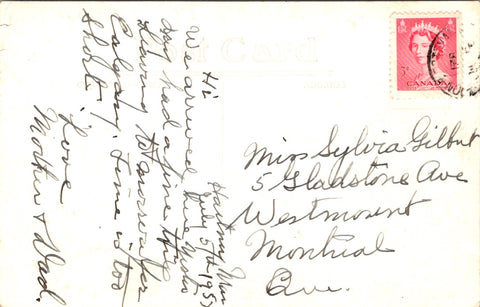 Post Card
CANADA
Hartney Man
July 5th 1953
Hi
We arrived here yester
day had a fine trip
leaving tomorrow for
Calgary. Time is too
short.
Love
Mother & Dad.
Miss Sylvia Gilbert
5 Gladstone Ave
Westmount
Montreal
Que.